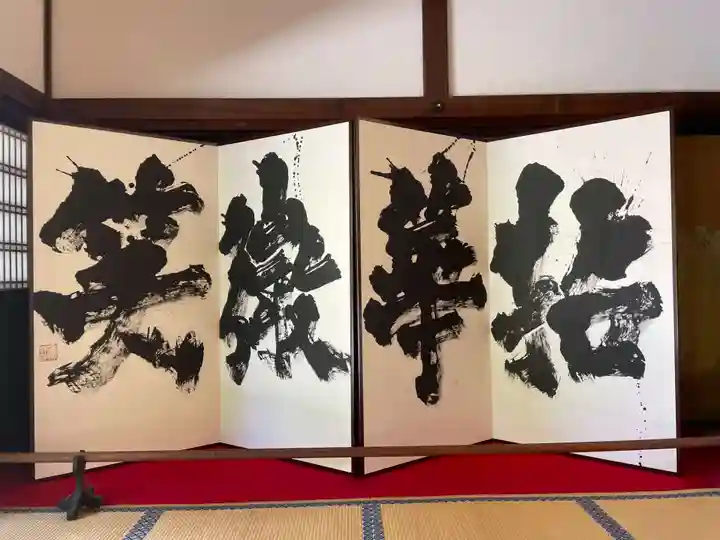 拈華微笑